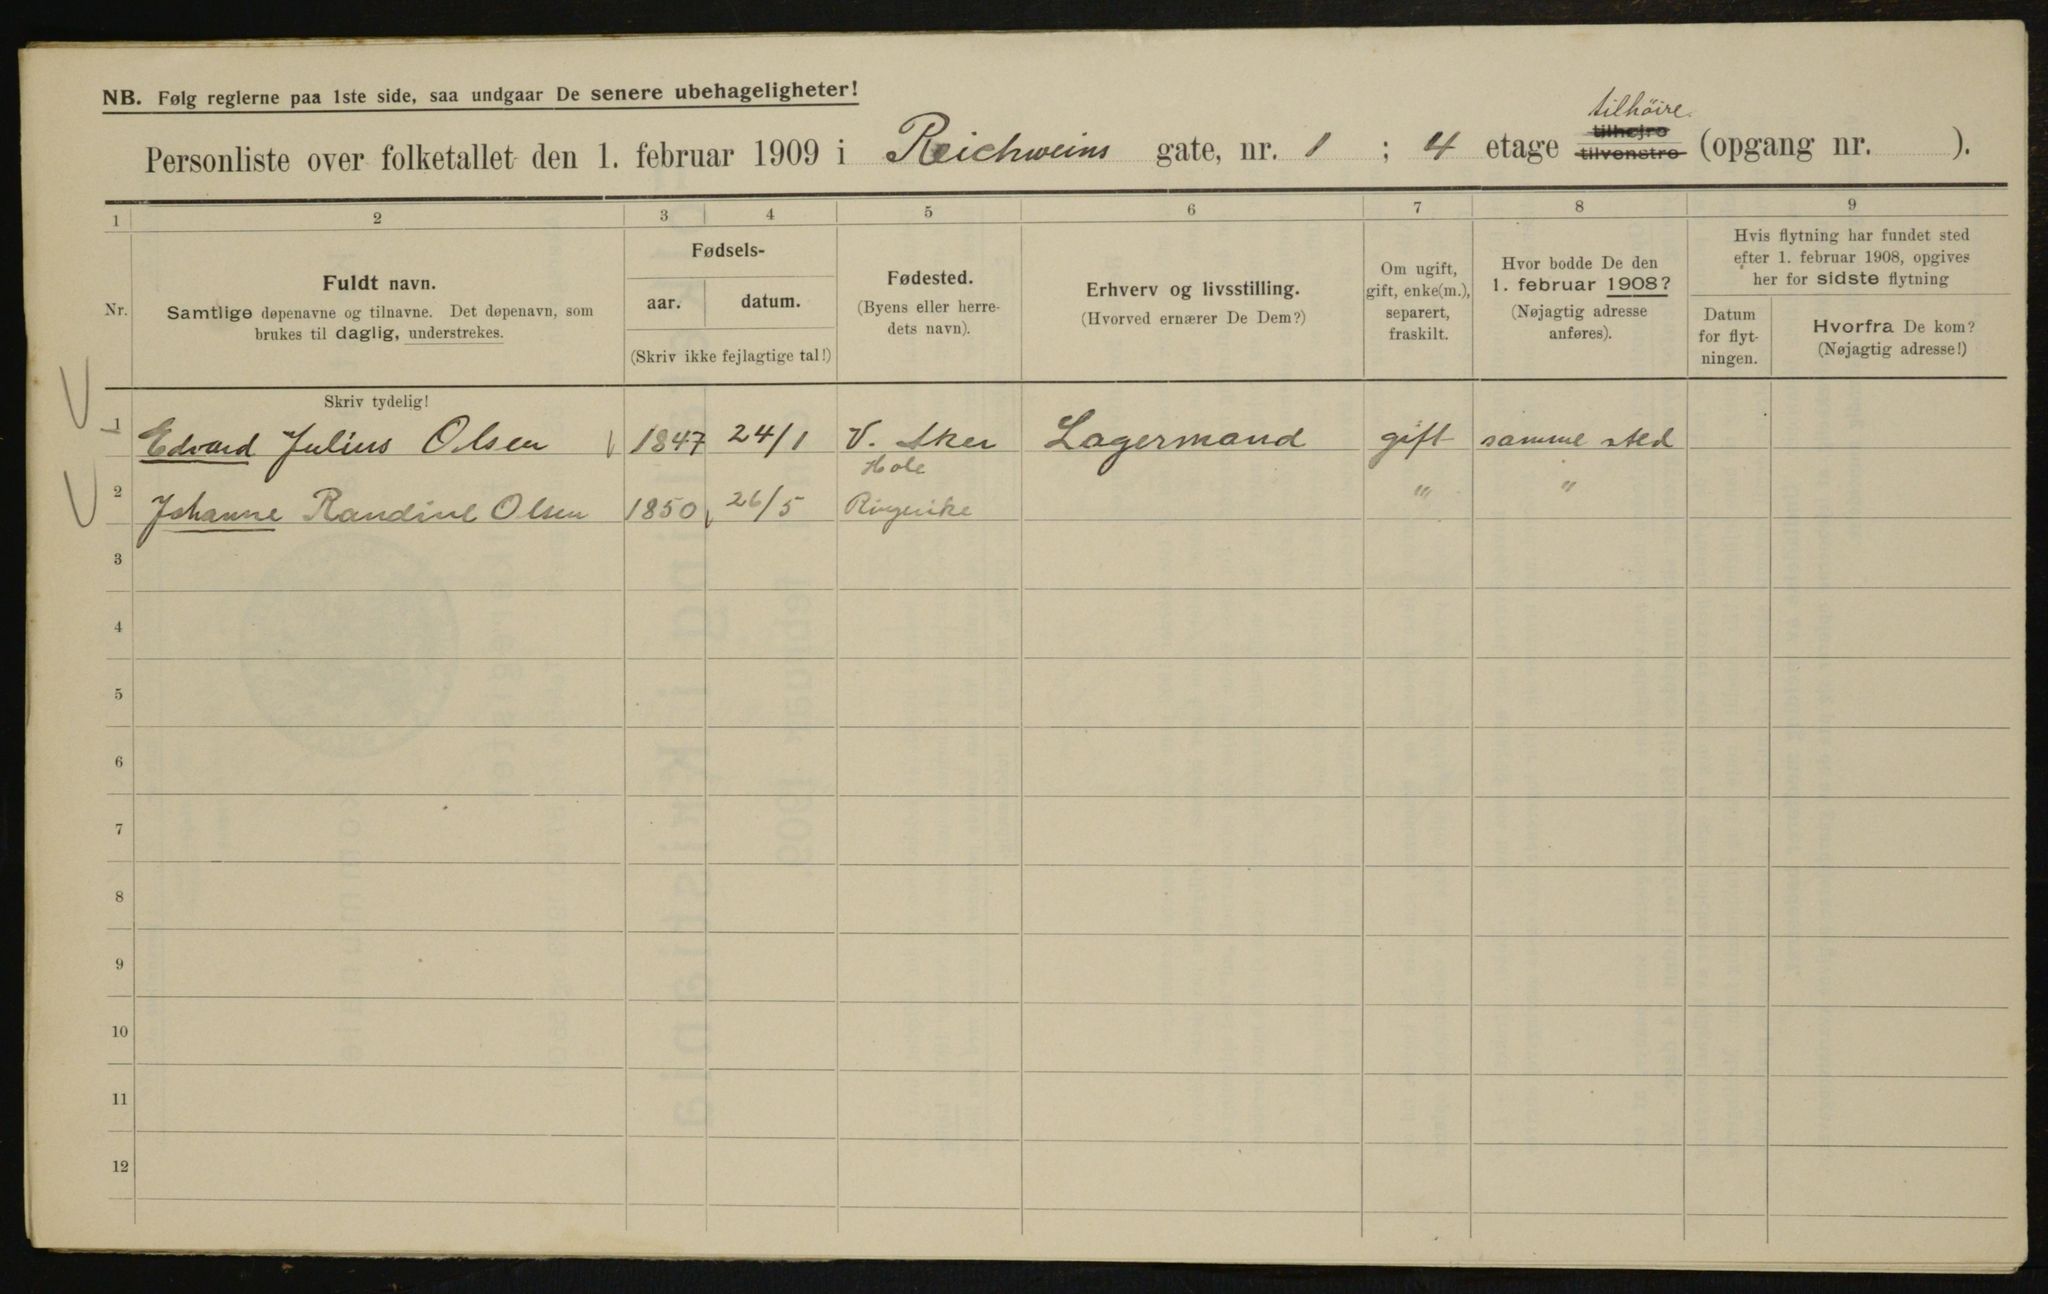 NB. Følg reglerne paa 1ste side, saa undgaar De senere ubehageligheter!
tilhöire.
Personliste over folketallet den 1. februar 1909 i Reichweins gate, nr. 1 ; 4 etage tilhøjre tilvenstre (opgang nr. ).
1 2 3 4 5 6 7 8 9
Nr.
Fuldt navn.
Samtlige døpenavne og tilnavne. Det døpenavn, som
brukes til daglig, understrekes.
Fødsels-
aar. datum.
(Skriv ikke fejlagtige tal!)
Fødested.
(Byens eller herre-
dets navn).
Erhverv og livsstilling.
(Hvorved ernærer De Dem?)
Om ugift,
gift, enke(m.),
separert,
fraskilt.
Hvor bodde De den
1. februar 1908?
(Nøjagtig adresse
anføres).
Hvis flytning har fundet sted
efter 1. februar 1908, opgives
her for sidste flytning
Datum
for flyt-
ningen.
Hvorfra De kom?
(Nøjagtig adresse!)
Skriv tydelig!
1 Edvard Julius Olsen 1847 24/1 V. Aker Lagermand gift samme sted
Hole
2 Johanne Randine Olsen 1850 26/5 Ringerike " "
3
4
5
6
7
8
9
10
11
12